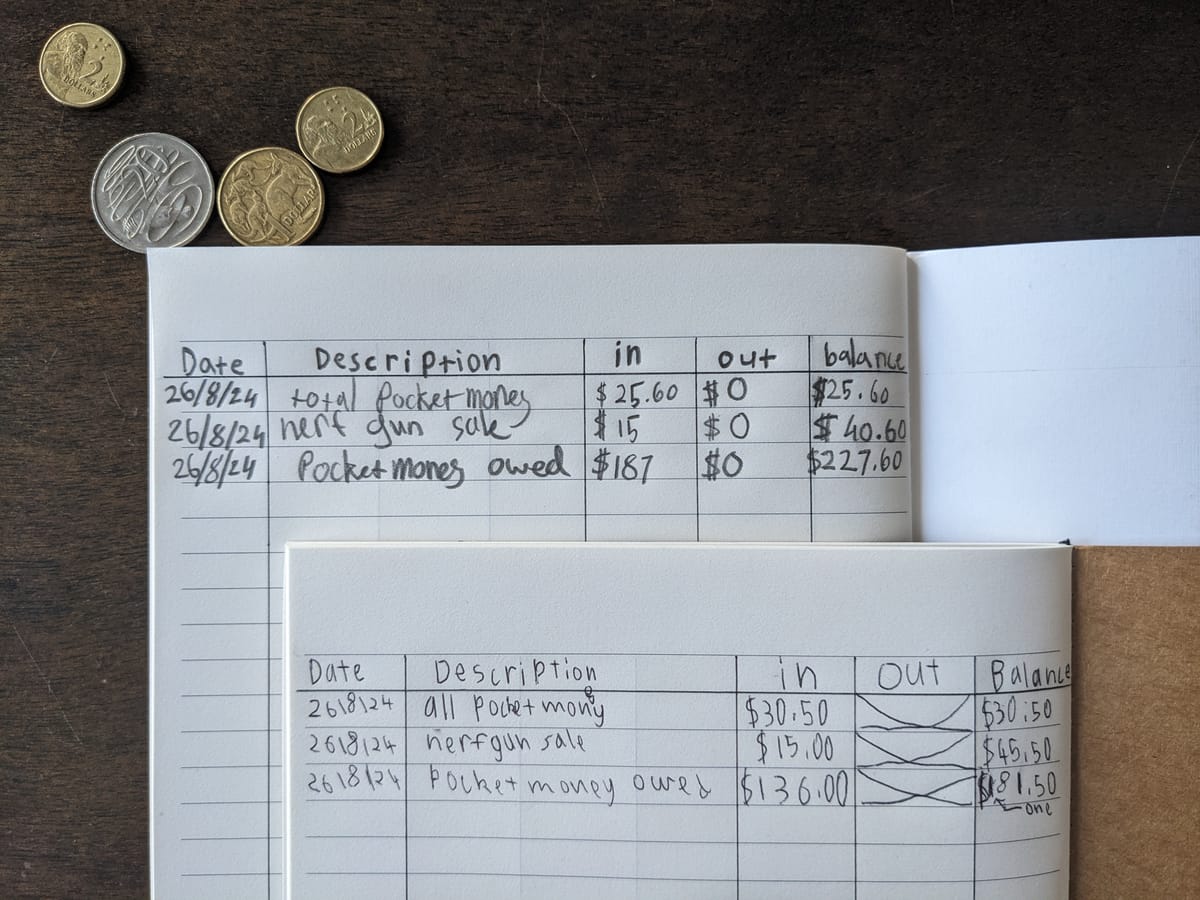 2 DOLLARS
2 DOLLARS
DOLLAR
Date Description in out balance
26/8/24 total Pocket money $25.60 $0 $25.60
26/8/24 nerf gun sale $15 $0 $40.60
26/8/24 Pocket money owed $187 $0 $227.60
Date Description in out Balance
26/8/24 all Pocket mony $30.50 $30.50
26/8/24 nerf gun sale $15.00 $45.50
26/8/24 Pocket money owed $136.00 $181.50
one